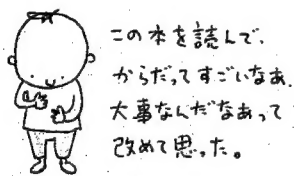 この本を読んで、
からだってすごいなあ、
大事なんだなあって
改めて思った。